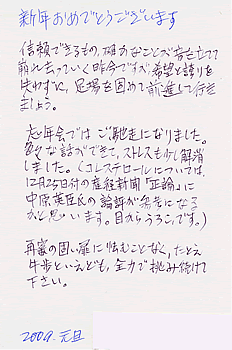 新年おめでとうございます
信頼できるもの、確かなことが音を立てて
崩れ去っていく昨今ですが、希望と誇りを
失わずに、足場を固めて前進して行き
ましょう。
忘年会ではご馳走になりました。
色々な話ができて、ストレスも少し解消
しました。(コレステロールについては、
12月25日付の産経新聞「正論」に
中原英臣氏の論評が参考になる
かと思います。目からうろこです。)
再審の固い扉に怯むことなく、たとえ
牛歩といえども、全力で挑み続けて
下さい。
2009. 元旦